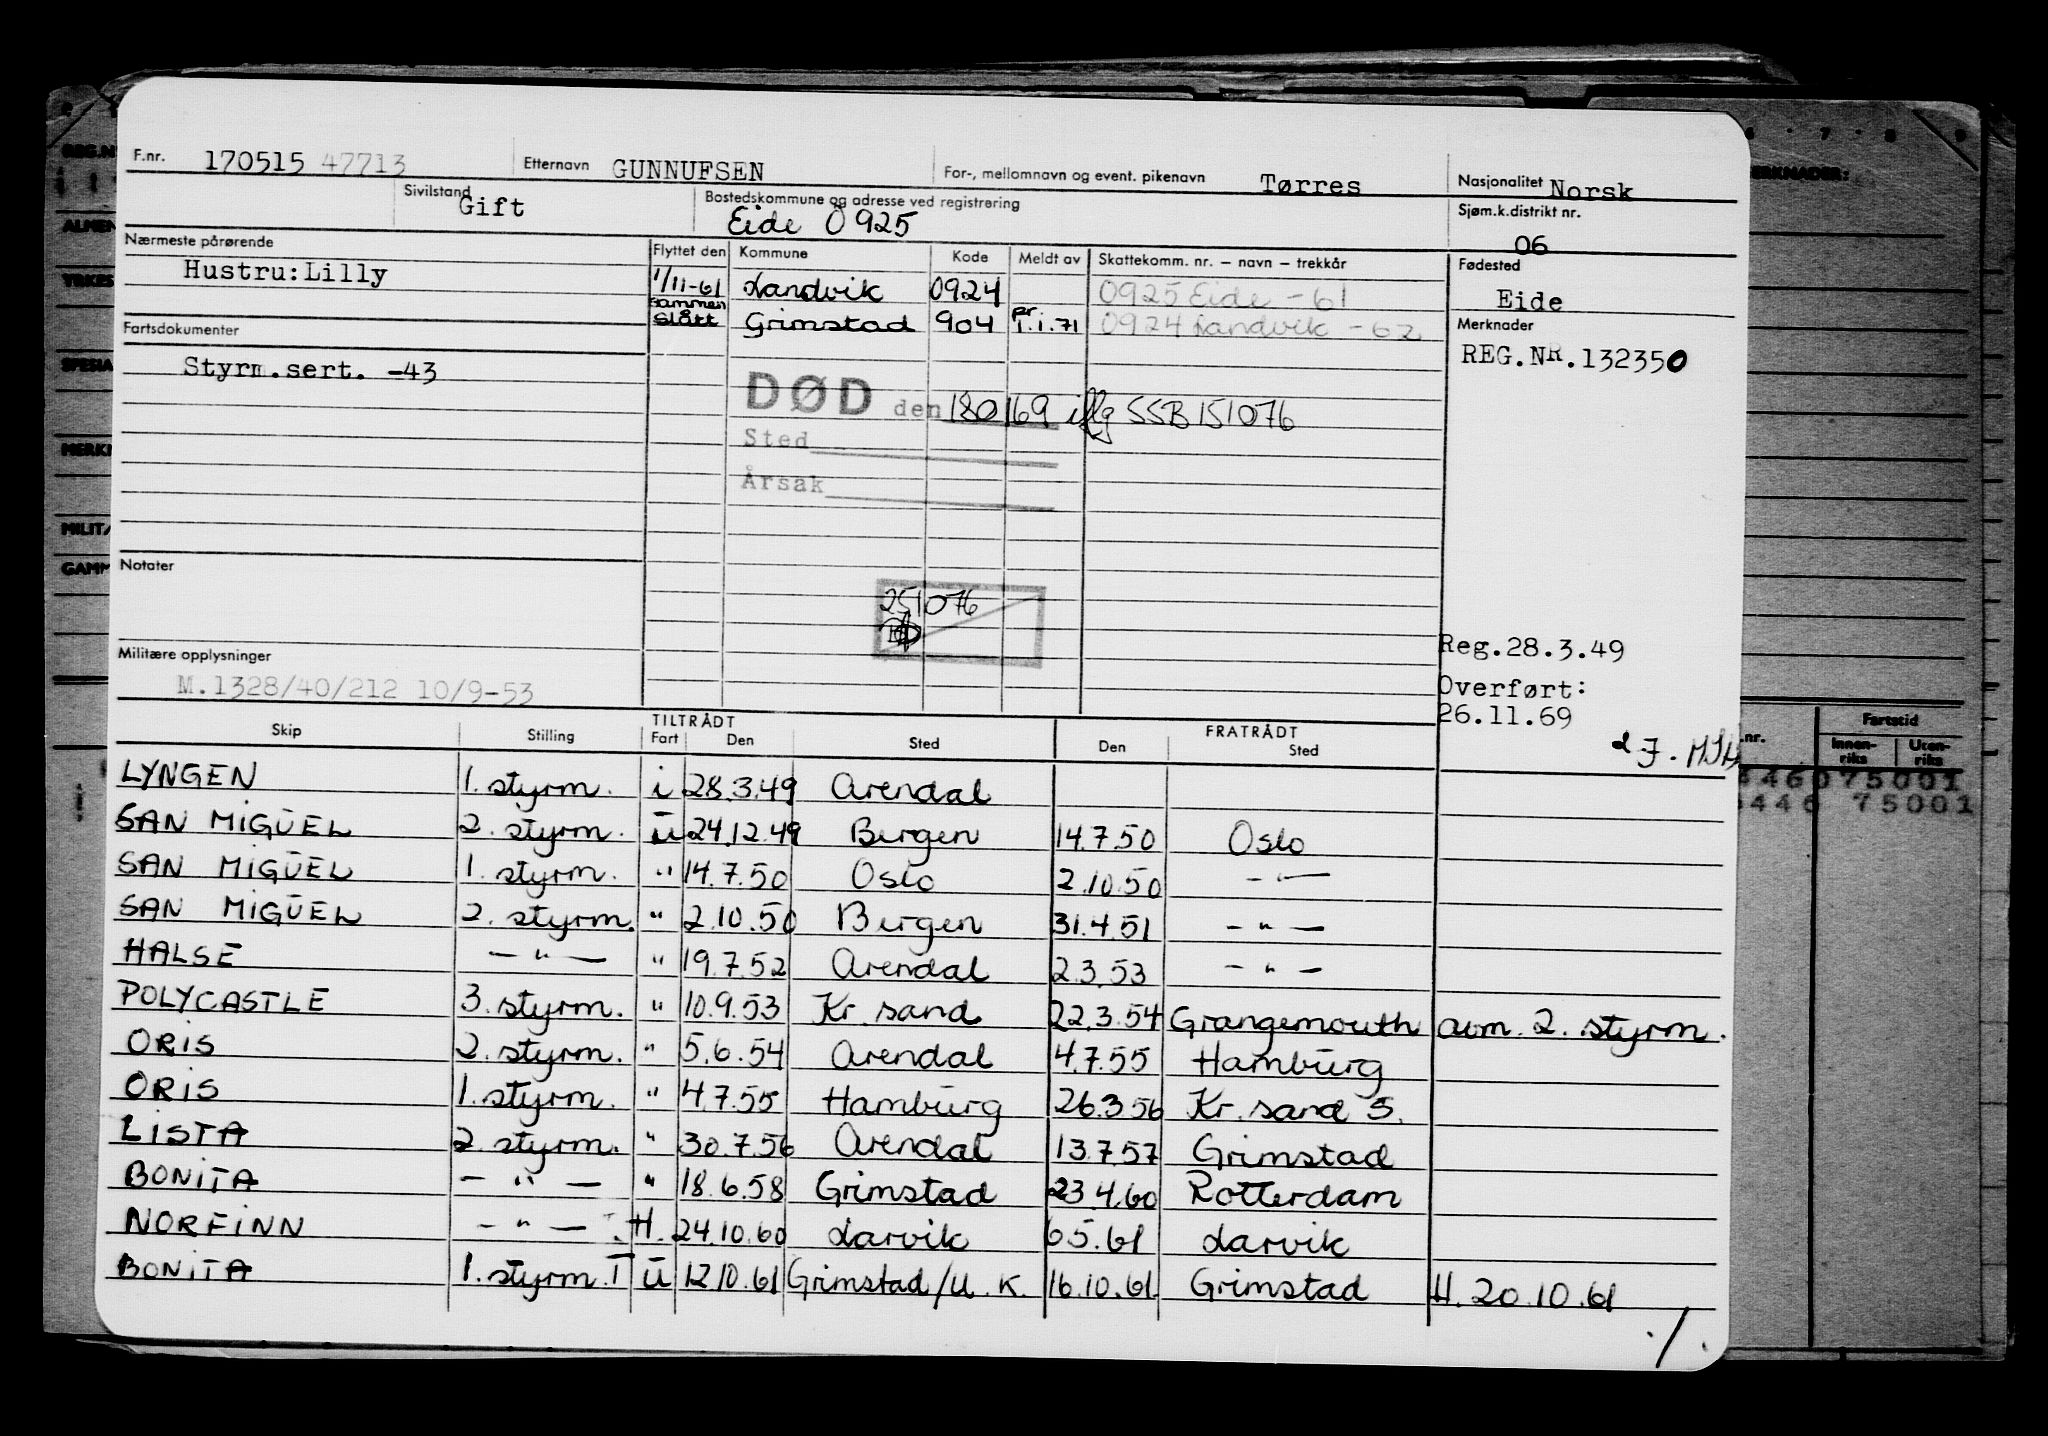 F.nr. 170515 47713 Etternavn GUNNUFSEN For-, mellomnavn og event. pikenavn Tørres Nasjonalitet Norsk
Sivilstand Gift Bostedskommune og adresse ved registrering Eide Ö 925 Sjøm.k.distrikt nr. 06
Nærmeste pårørende Flyttet den Kommune Kode Meldt av Skattekomm. nr. – navn – trekkår Fødested
Hustru: Lilly 1/11-61 Landvik 0924 0925 Eide -61 Eide
Fartsdokumenter sammen slått Grimstad 904 pr. 1.1.71 0924 Landvik -62 Merknader
Styrm.sert. -43 REG.NR.132350
DØD den 180169 iflg SSB 151076
Sted
Årsak
Notater
251076
Militære opplysninger Reg.28.3.49
M.1328/40/212 10/9-53 Overført:
26.11.69
TILTRÅDT FRATRÅDT
Skip Stilling Fart Den Sted Den Sted
LYNGEN 1. styrm. i 28.3.49 Arendal
SAN MIGUEL 2. styrm. ū 24.12.49 Bergen 14.7.50 Oslo
SAN MIGUEL 1. styrm. " 14.7.50 Oslo 2.10.50 - " -
SAN MIGUEL 2. styrm. " 2.10.50 Bergen 31.4.51 - " -
HALSE - " - " 19.7.52 Arendal 2.3.53 - " -
POLYCASTLE 3. styrm. " 10.9.53 Kr. sand 22.3.54 Grangemouth avm. 2. styrm.
ORIS 2. styrm. " 5.6.54 Arendal 4.7.55 Hamburg
ORIS 1. styrm. " 4.7.55 Hamburg 26.3.56 Kr. sand S.
LISTA 2. styrm. " 30.7.56 Arendal 13.7.57 Grimstad
BONITA - " - " 18.6.58 Grimstad 23.4.60 Rotterdam
NORFINN - " - H. 24.10.60 Larvik 6.5.61 Larvik
BONITA 1. styrm. I ū 12.10.61 Grimstad/U.K. 16.10.61 Grimstad H. 20.10.61
./.
6 7 8 9
REG.N
ERKNADER:
ALMEN
YRKES
SPESIA
MERK
MILIT
GAMM
nr. Fartstid
Innen-riks Uten-riks
446075001
446 75001